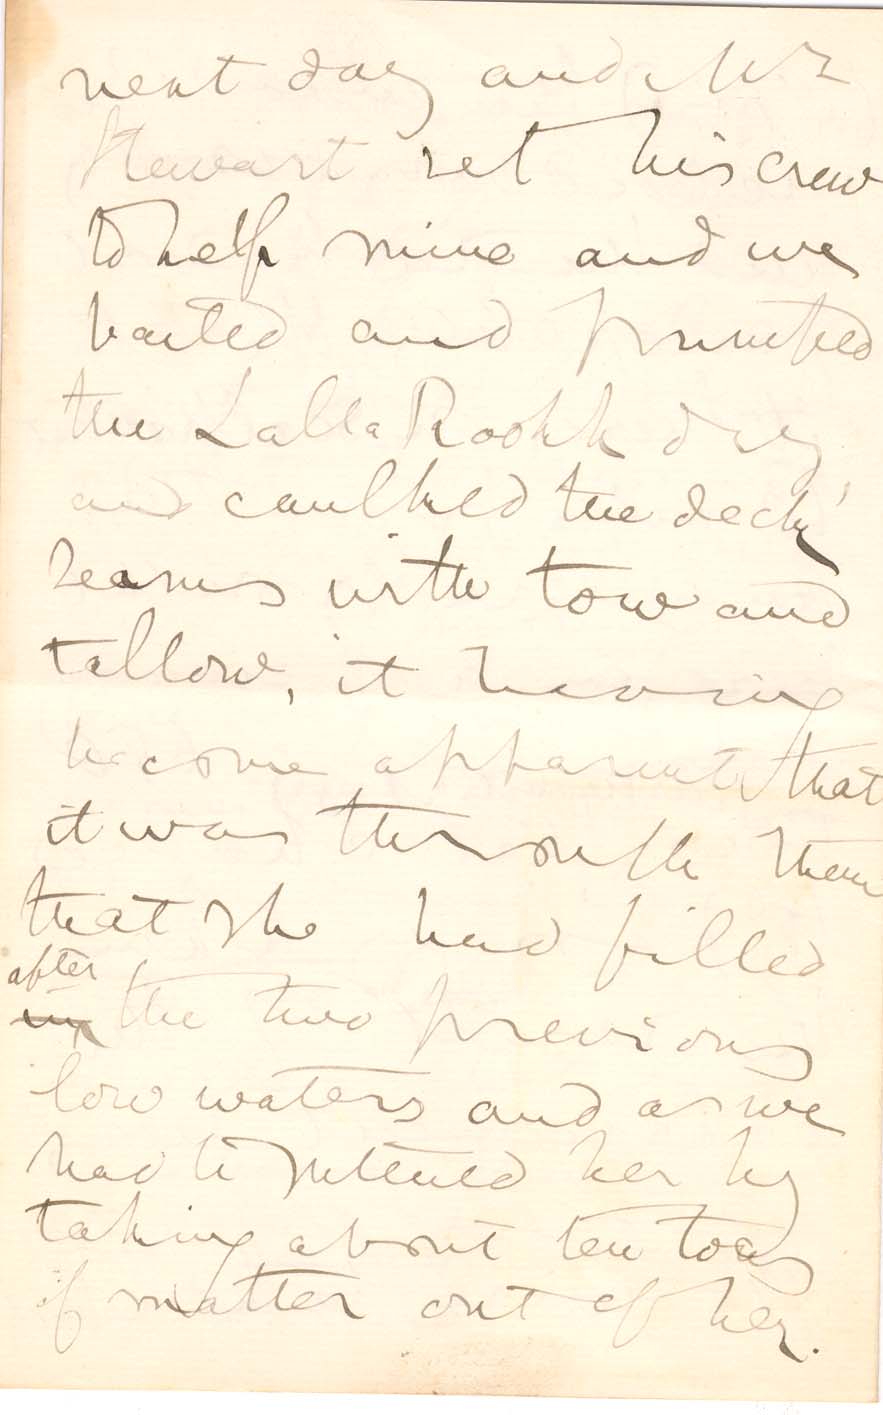 next day and Mr
Stewart set his crew
to help mine and we
bailed and pumped
the Lalla Rookh dry
and caulked the deck
seams with tow and
tallow, it having
become apparent that
it was through them
that she had filled
after
in the two previous
low waters and as we
had her by
taking about ten tons
of matter out of her.